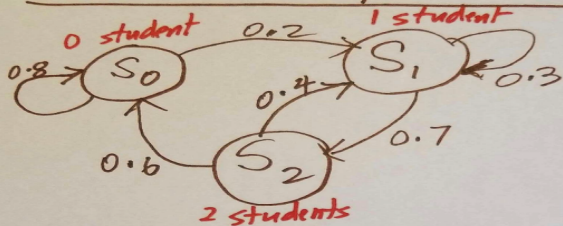 0 student
1 student
0.2
0.8
S0
S1
0.3
0.4
0.7
0.6
S2
2 students